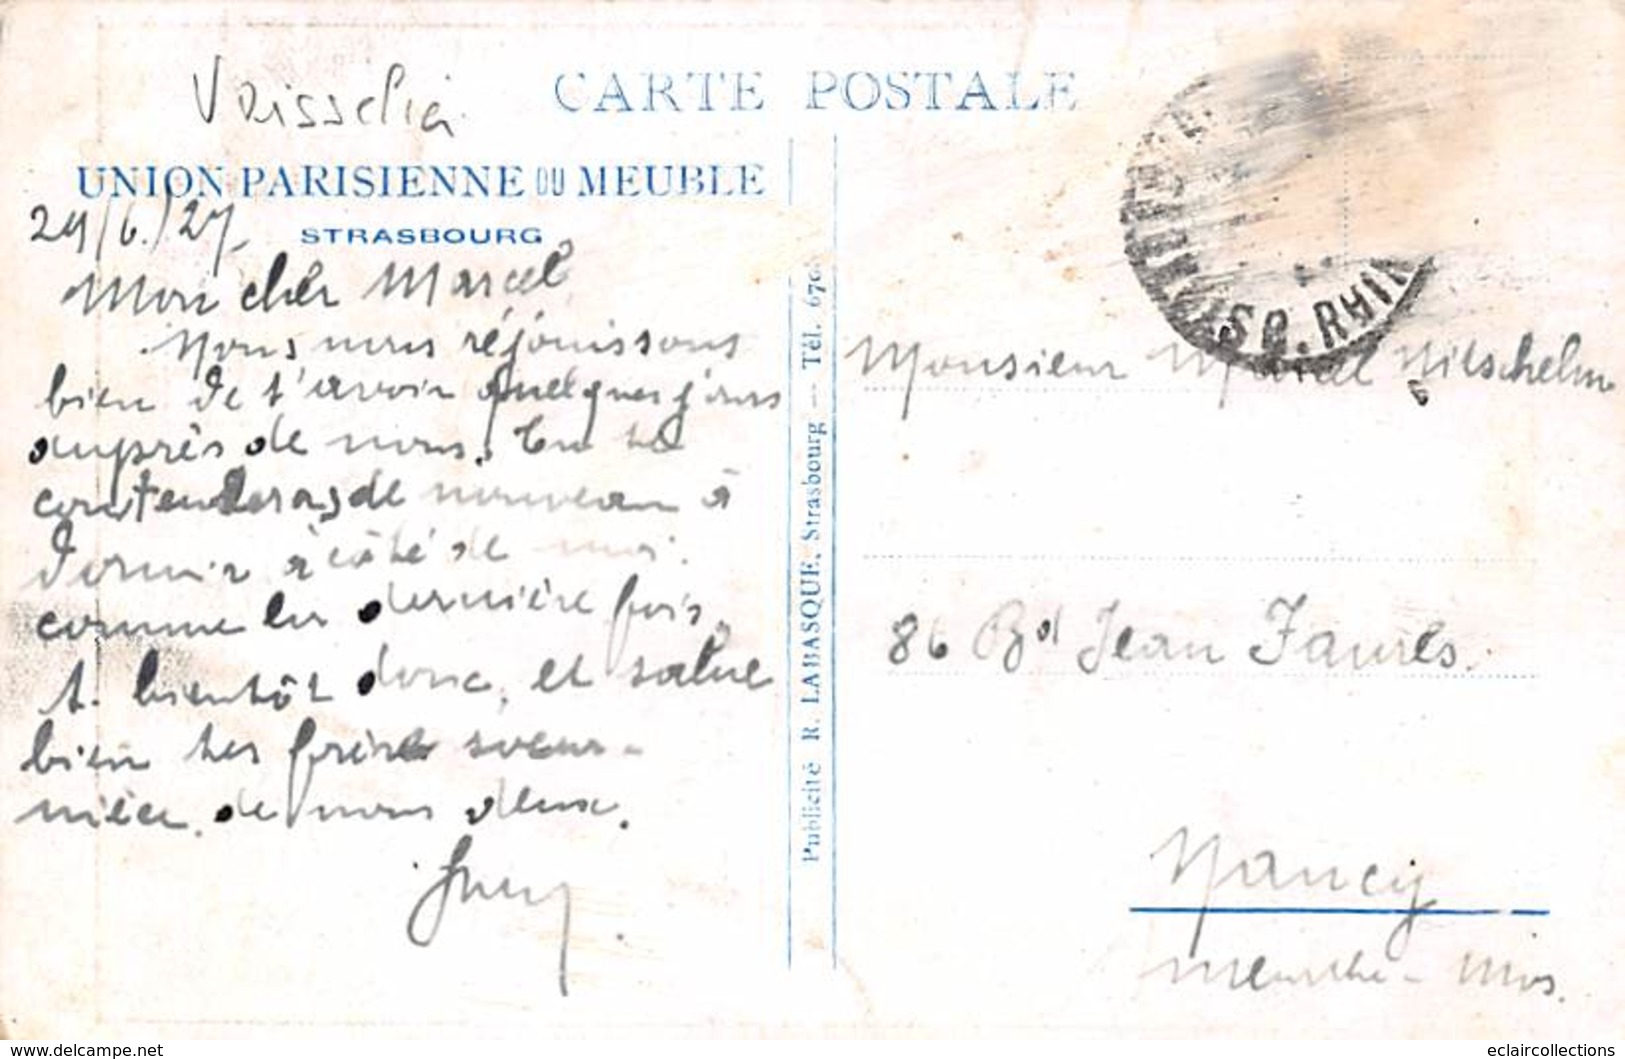 Vaisselia
CARTE POSTALE
UNION PARISIENNE DU MEUBLE
STRASBOURG
29/6./27.
Mon cher Marcel
Nous nous réjouissons
bien de t'avoir quelques jours
auprès de nous. Tu te
contenderas de nouveau à
dormir à côté de moi
comme la dernière fois.
A bientôt donc, et salue
bien tes frère soeur
nièce de nous deux.
Publicité R. LABASQUE. Strasbourg — Tél. 670
SQ. RHIN
Monsieur Marcel Nitschelm
86 Bd Jean Jaurès.
Nancy
Meurthe - Mos.
www.delcampe.net
eclaircollections